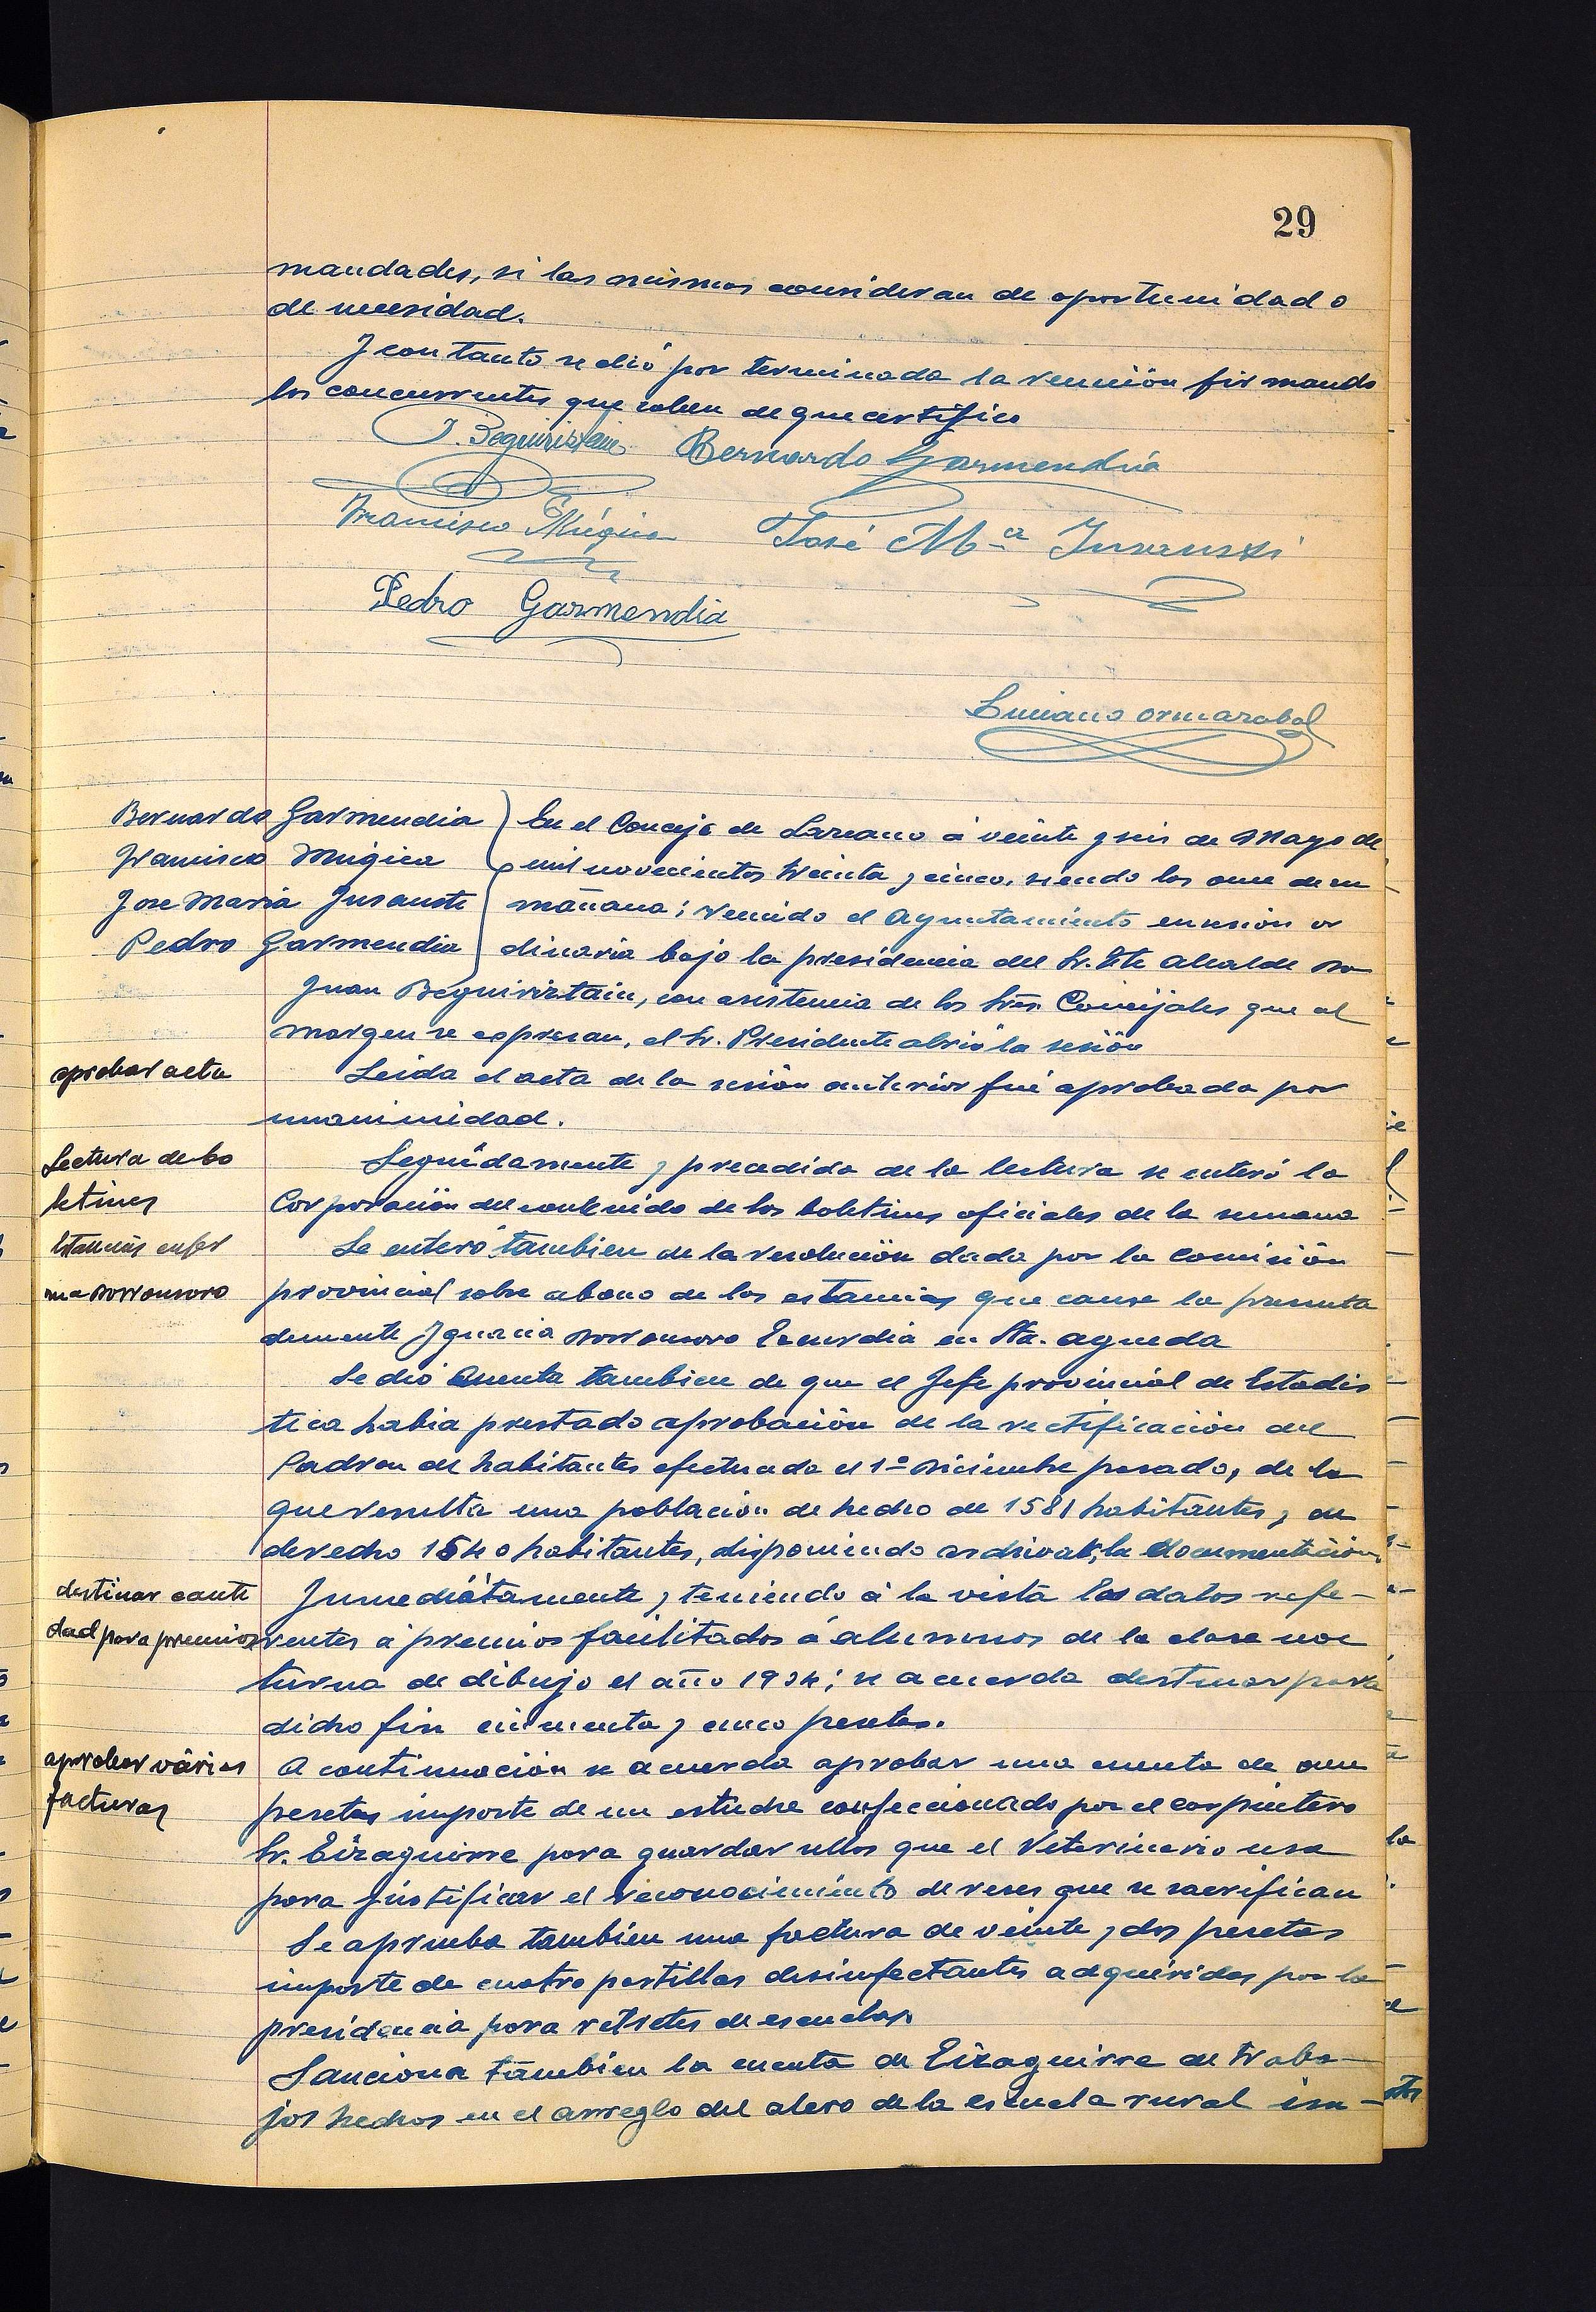 29
mandades, si las mismas consideran de oportunidad o
de necesidad.
Y con tanto se dió por terminada la reunión firmando
los concurrentes que saben de que certifico
J. Beguiristain Bernardo Garmendia
Francisco Múgica José Mª Insausti
Pedro Garmendia
Luciano Ormazabal
Bernardo Garmendia
Francisco Mugica
Jose Maria Insauste
Pedro Garmendia
En el Concejo de Lazcano á veinte y seis de Mayo de
mil novecientos treinta y cinco, siendo las once de su
mañana; reunido el Ayuntamiento en sesión or
dinaria bajo la presidencia del Sr. Tte Alcalde Don
Juan Beguiriztain, con asistencia de los Sres. Concejales que al
margen se expresan, el Sr. Presidente abrió la sesión
aprobar acta
Leida el acta de la sesión anterior fué aprobada por
unanimidad.
Lectura de bo
letines
Seguidamente y precedida de la lectura se enteró la
Corporación del contenido de los boletines oficiales de la semana
Estancias enfer
ma Dorronsoro
Se enteró tambien de la resolución dada por la Comisión
provincial sobre abono de las estancias que cause la presunta
demente Ignacia Dorronsoro Ezcurdia en Sta. Agueda
Se dió cuenta tambien de que el Jefe provincial de Estadis
tica habia prestado aprobación de la rectificación del
Padron de habitantes efectuada el 1º Diciembre pasado, de la
que resulta una población de hecho de 1581 habitantes y de
derecho 1540 habitantes, disponiendo archivar la documentación
destinar canti
dad para premios
Inmediátamente y teniendo á la vista los datos refe-
rentes a premios facilitados á alumnos de la clase noc
turna de dibujo el año 1934; se acuerda destinar para
dicho fin cincuenta y cinco pesetas.
aprobar várias
facturas
A continuación se acuerda aprobar una cuenta de once
pesetas importe de un estuche confeccionado por el carpintero
Sr. Eizaguirre para guardar sellos que el Veterinario usa
para justificar el reconocimiento de reses que se sacrifican
Se aprueba tambien una factura de veinte y dos pesetas
importe de cuatro pastillas desinfectantes adquiridas por la
presidencia para retretes de escuelas
Sanciona tambien la cuenta de Eizaguirre de traba-
jos hechos en el arreglo del alero de la escuela rural im-